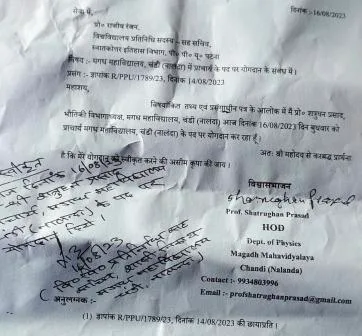 सेवा में,
दिनांक :-16/08/2023
प्रो० राजीव रंजन,
विश्वविद्यालय प्रतिनिधि सदस्य – सह सचिव,
स्नातकोत्तर इतिहास विभाग, पी० पी० यू० पटना
विषय :- मगध महाविद्यालय, चंडी (नालंदा) में प्राचार्य के पद पर योगदान के संबंध में।
प्रसंग :- ज्ञापांक R/PPU/1789/23, दिनांक 14/08/2023
महाशय,
विषयांकित तथ्य एवं प्रसंगाधीन पत्र के आलोक में मैं प्रो० शत्रुघ्न प्रसाद,
भौतिकी विभागाध्यक्ष, मगध महाविद्यालय, चंडी (नालंदा) आज दिनांक 16/08/2023 दिन बुधवार को
प्राचार्य मगध महाविद्यालय, चंडी (नालंदा) के पद पर योगदान कर रहा हूँ।
अतः श्री महोदय से करबद्ध प्रार्थना
है कि मेरे योगदान को स्वीकृत करने की असीम कृपा की जाय।
16/08/23
के पद पर
योगदान
16/08/23
विश्वासभाजन
Shatrughan Prasad
Prof. Shatrughan Prasad
HOD
Dept. of Physics
Magadh Mahavidyalaya
Chandi (Nalanda)
Contact :- 9934803996
Email :- profshatrughanprasad@gmail.com
अनुलग्नक :-
(1) ज्ञापांक R/PPU/1789/23, दिनांक 14/08/2023 की छायाप्रति।